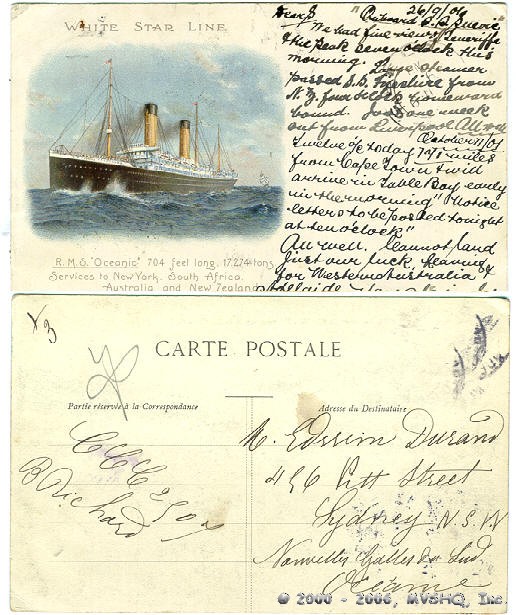 WHITE STAR LINE.
R.M.S. "Oceanic" 704 feet long. 17,274 tons.
Services to New York, South Africa,
Australia and New Zealand
26/9/06
On board S.S. Suevic
We had fine views Teneriffe
the peak seven o'clock this
morning. Large steamer
passed S.S. from
N.Z. four homeward
bound. Just one week
out from Liverpool All well
October 11/01
Twelve o/c today 701 miles
from Cape Town & will
arrive in Table Bay early
in the morning "Notice
letters to be posted tonight
at ten o'clock"
All well. Cannot land
just our luck. Leaving
for Western Australia
Adelaide
X 3
CARTE POSTALE
Partie réservée à la Correspondance
Adresse du Destinataire
CCC
B Richard
M. Durand
456 Pitt Street
Sydney N.S.W
Nouvelles Galles du Sud.
Océanie
© 2000 - 2006, MVSHQ, Inc.